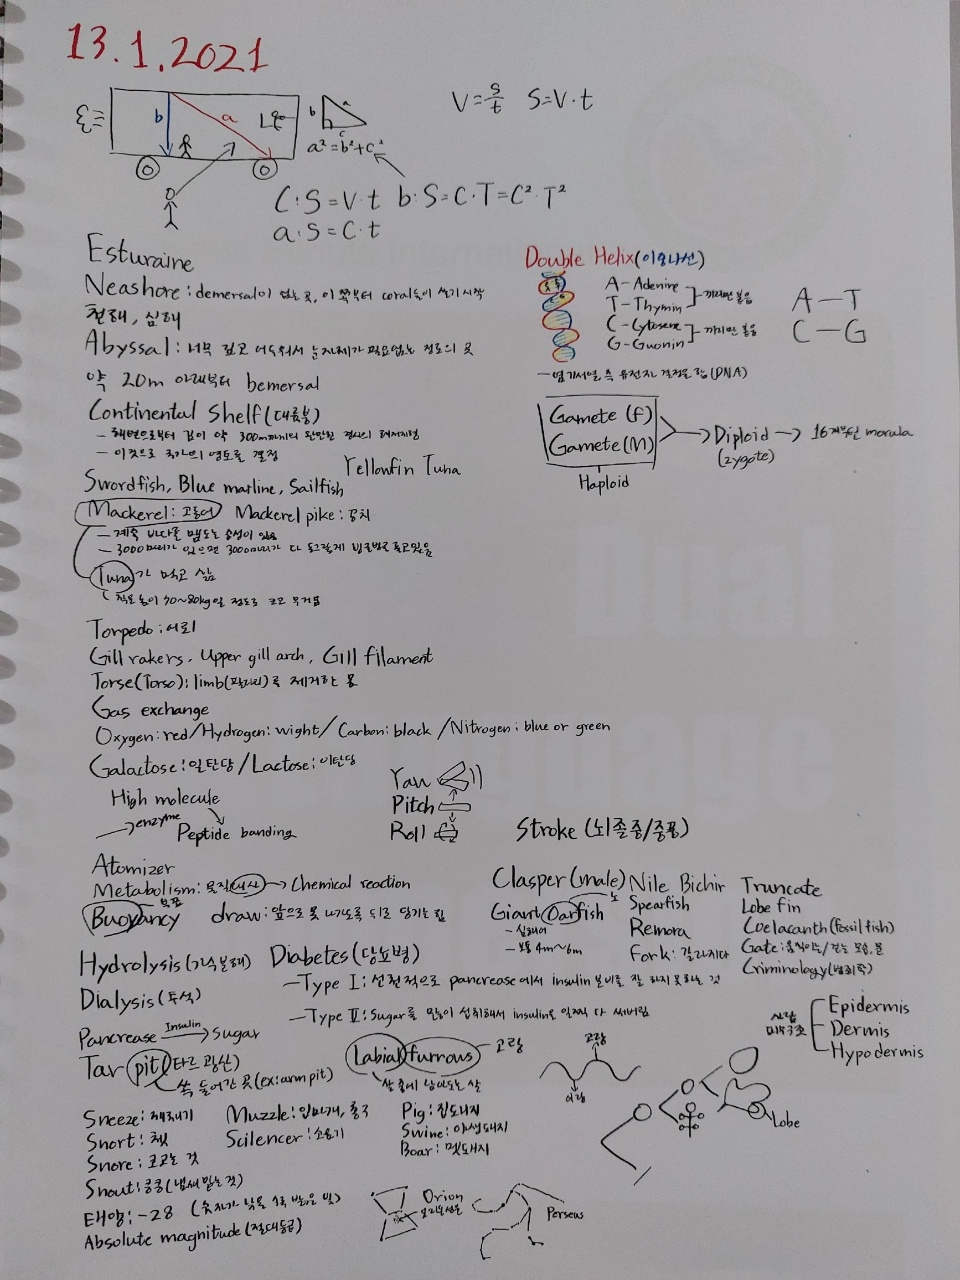 13.1.2021
b a
b a c
a²=b²+c²
V=s/t S=V·t
C:S=V·t b:S=C·T=C²·T²
a:S=C·t
Esturaine
Neashore: demersal이 없는 곳, 이 쪽부터 coral들이 살기 시작
천해, 심해
Abyssal: 너무 깊고 어두워서 눈 자체가 필요없는 정도의 곳
약 20m 아래부터 bemersal
Continental Shelf(대륙붕)
- 해변으로부터 깊이 약 300m까지의 완만한 경사의 해저지형
- 이것으로 국가의 영토를 결정
Yellowfin Tuna
Swordfish, Blue marline, Sailfish
Mackerel: 고등어 Mackerel pike: 꽁치
- 계속 바다를 맴도는 습성이 있음
- 3000마리가 있으면 3000마리가 다 동그랗게 빙글빙글 돌고있음
Tuna가 먹고 삶
작은 놈이 70~80kg일 정도로 크고 무거움
Torpedo: 어뢰
Gill rakers, Upper gill arch, Gill filament
Torse(Torso): limb(팔다리)를 제거한 몸
Gas exchange
Oxygen: red/Hydrogen: wight/Carbon: black/Nitrogen: blue or green
Galactose: 일탄당/Lactose: 이탄당
High molecule
enzyme
Peptide banding
Yaw
Pitch
Roll
Double Helix(이중나선)
A-Adenine
T-Thymin 끼리만 붙음
C-Cytosene
G-Guonin 끼리만 붙음
A-T
C-G
- 염기서열, 즉 유전자 결정을 함(DNA)
Gamete (f)
Gamete(M)
Haploid
Diploid
(zygote)
16개부턴 morula
Stroke (뇌졸중/중풍)
Atomizer
Metabolism: 물질대사 → Chemical reaction
Buoyancy 부표 draw: 앞으로 못 나가도록 뒤로 당기는 힘
Hydrolysis(가수분해)
Dialysis(투석)
Pancrease Insulin → Sugar
Clasper(male)
Giant Oarfish 노
- 심해어
- 보통 4m~6m
Nile Bichir
Spearfish
Remora
Fork: 갈라지다
Truncate
Lobe fin
Coelacanth(fossil fish)
Gate: 움직이는/걷는 모습, 문
Criminology(범죄학)
Diabetes(당뇨병)
- Type I: 선천적으로 pancrease에서 insulin 분비를 잘 하지 못하는 것
- Type II: Sugar를 많이 섭취해서 insulin을 일찍 다 써버림
Tar pit(타르 광산)
쏙 들어간 곳(ex: armpit)
Labial furrows 고랑
고랑
이랑
사람 피부구조
Epidermis
Dermis
Hypodermis
Lobe
Sneeze: 재채기
Snort: 쳇
Snore: 코고는 것
Snout: 킁킁(냄새 맡는 것)
Muzzle: 입마개, 총구
Scilencer: 소음기
Pig: 집돼지
Swine: 야생돼지
Boar: 멧돼지
태양: -28 (숫자가 낮을수록 밝은 빛)
Absolute magnitude(절대등급)
Orion
오리온성운
Perseus